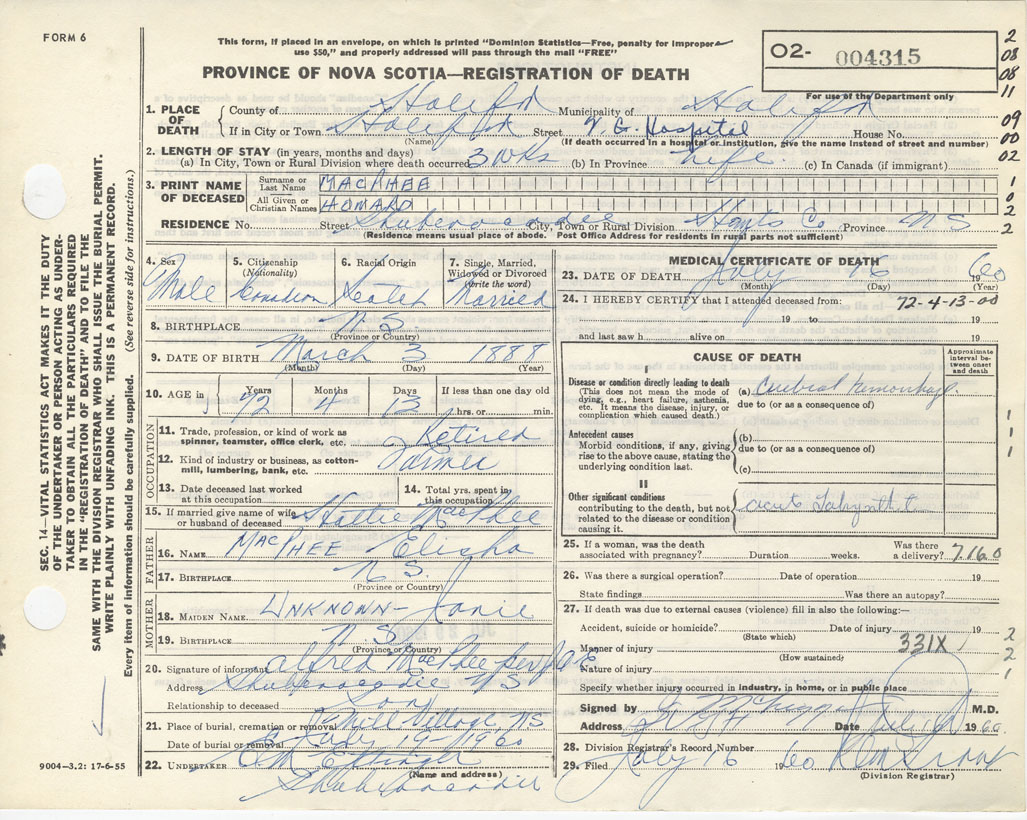 FORM 6
This form, if placed in an envelope, on which is printed "Dominion Statistics—Free, penalty for improper
use $50," and properly addressed will pass through the mail "FREE"
PROVINCE OF NOVA SCOTIA—REGISTRATION OF DEATH
O2- 004315
For use of the Department only
2
08
08
11
09
00
02
1
0
2
2
1. PLACE OF DEATH
County of Halifax Municipality of Halifax
If in City or Town Halifax Street V. G. Hospital House No.
(Name) (If death occurred in a hospital or institution, give the name instead of street and number)
2. LENGTH OF STAY (in years, months and days)
(a) In City, Town or Rural Division where death occurred 3 wks (b) In Province Life (c) In Canada (if immigrant)
3. PRINT NAME OF DECEASED
Surname or Last Name MACPHEE
All Given or Christian Names HOWARD
RESIDENCE No. Street Shubenacadie City, Town or Rural Division Hants Co Province N S
(Residence means usual place of abode. Post Office Address for residents in rural parts not sufficient)
4. Sex Male
5. Citizenship (Nationality) Canadian
6. Racial Origin Scotch
7. Single, Married, Widowed or Divorced (Write the word) Married
8. BIRTHPLACE N S
(Province or Country)
9. DATE OF BIRTH March 3 1888
(Month) (Day) (Year)
10. AGE in Years 72 Months 4 Days 13 If less than one day old
hrs. or min.
OCCUPATION
11. Trade, profession, or kind of work as spinner, teamster, office clerk, etc. Retired
12. Kind of industry or business, as cotton-mill, lumbering, bank, etc. Farmer
13. Date deceased last worked at this occupation
14. Total yrs. spent in this occupation
15. If married give name of wife or husband of deceased Hattie MacPhee
FATHER
16. NAME MACPHEE Elisha
17. BIRTHPLACE N S.
(Province or Country)
MOTHER
18. MAIDEN NAME UNKNOWN- Janie
19. BIRTHPLACE N S
(Province or Country)
20. Signature of informant Alfred MacPhee per
Address Shubenacadie N S
Relationship to deceased Son
21. Place of burial, cremation or removal Mill Village, NS
Date of burial or removal July 19-1960
22. UNDERTAKER Ettinger
(Name and address)
Shubenacadie
9004—3.2: 17-6-55
SEC. 14—VITAL STATISTICS ACT MAKES IT THE DUTY
OF THE UNDERTAKER OR PERSON ACTING AS UNDER-
TAKER TO OBTAIN ALL THE PARTICULARS REQUIRED
IN THE "REGISTRATION OF DEATH" AND TO FILE THE
SAME WITH THE DIVISION REGISTRAR WHO SHALL ISSUE THE BURIAL PERMIT.
WRITE PLAINLY WITH UNFADING INK. THIS IS A PERMANENT RECORD.
Every item of information should be carefully supplied. (See reverse side for instructions.)
MEDICAL CERTIFICATE OF DEATH
23. DATE OF DEATH July 16 1960
(Month) (Day) (Year)
24. I HEREBY CERTIFY that I attended deceased from: 72-4-13-00
19 to 19
and last saw h alive on 19
CAUSE OF DEATH
Approximate interval between onset and death
I
Disease or condition directly leading to death
(This does not mean the mode of dying, e.g., heart failure, asthenia, etc. It means the disease, injury, or complication which caused death.)
(a) Cerebral Hemorrhage
due to (or as a consequence of)
Antecedent causes
Morbid conditions, if any, giving rise to the above cause, stating the underlying condition last.
(b)
due to (or as a consequence of)
(c)
II
Other significant conditions
contributing to the death, but not related to the disease or condition causing it.
acute
1
1
1
25. If a woman, was the death associated with pregnancy? Duration weeks. Was there a delivery? 7.16.0
26. Was there a surgical operation? Date of operation 19
State findings Was there an autopsy?
27. If death was due to external causes (violence) fill in also the following:—
Accident, suicide or homicide? Date of injury 19
(State which)
Manner of injury 331X
(How sustained)
Nature of injury
Specify whether injury occurred in industry, in home, or in public place
2
2
1
Signed by M.D.
Address Date July 1960
28. Division Registrar's Record Number
29. Filed July 16 1960
(Division Registrar)